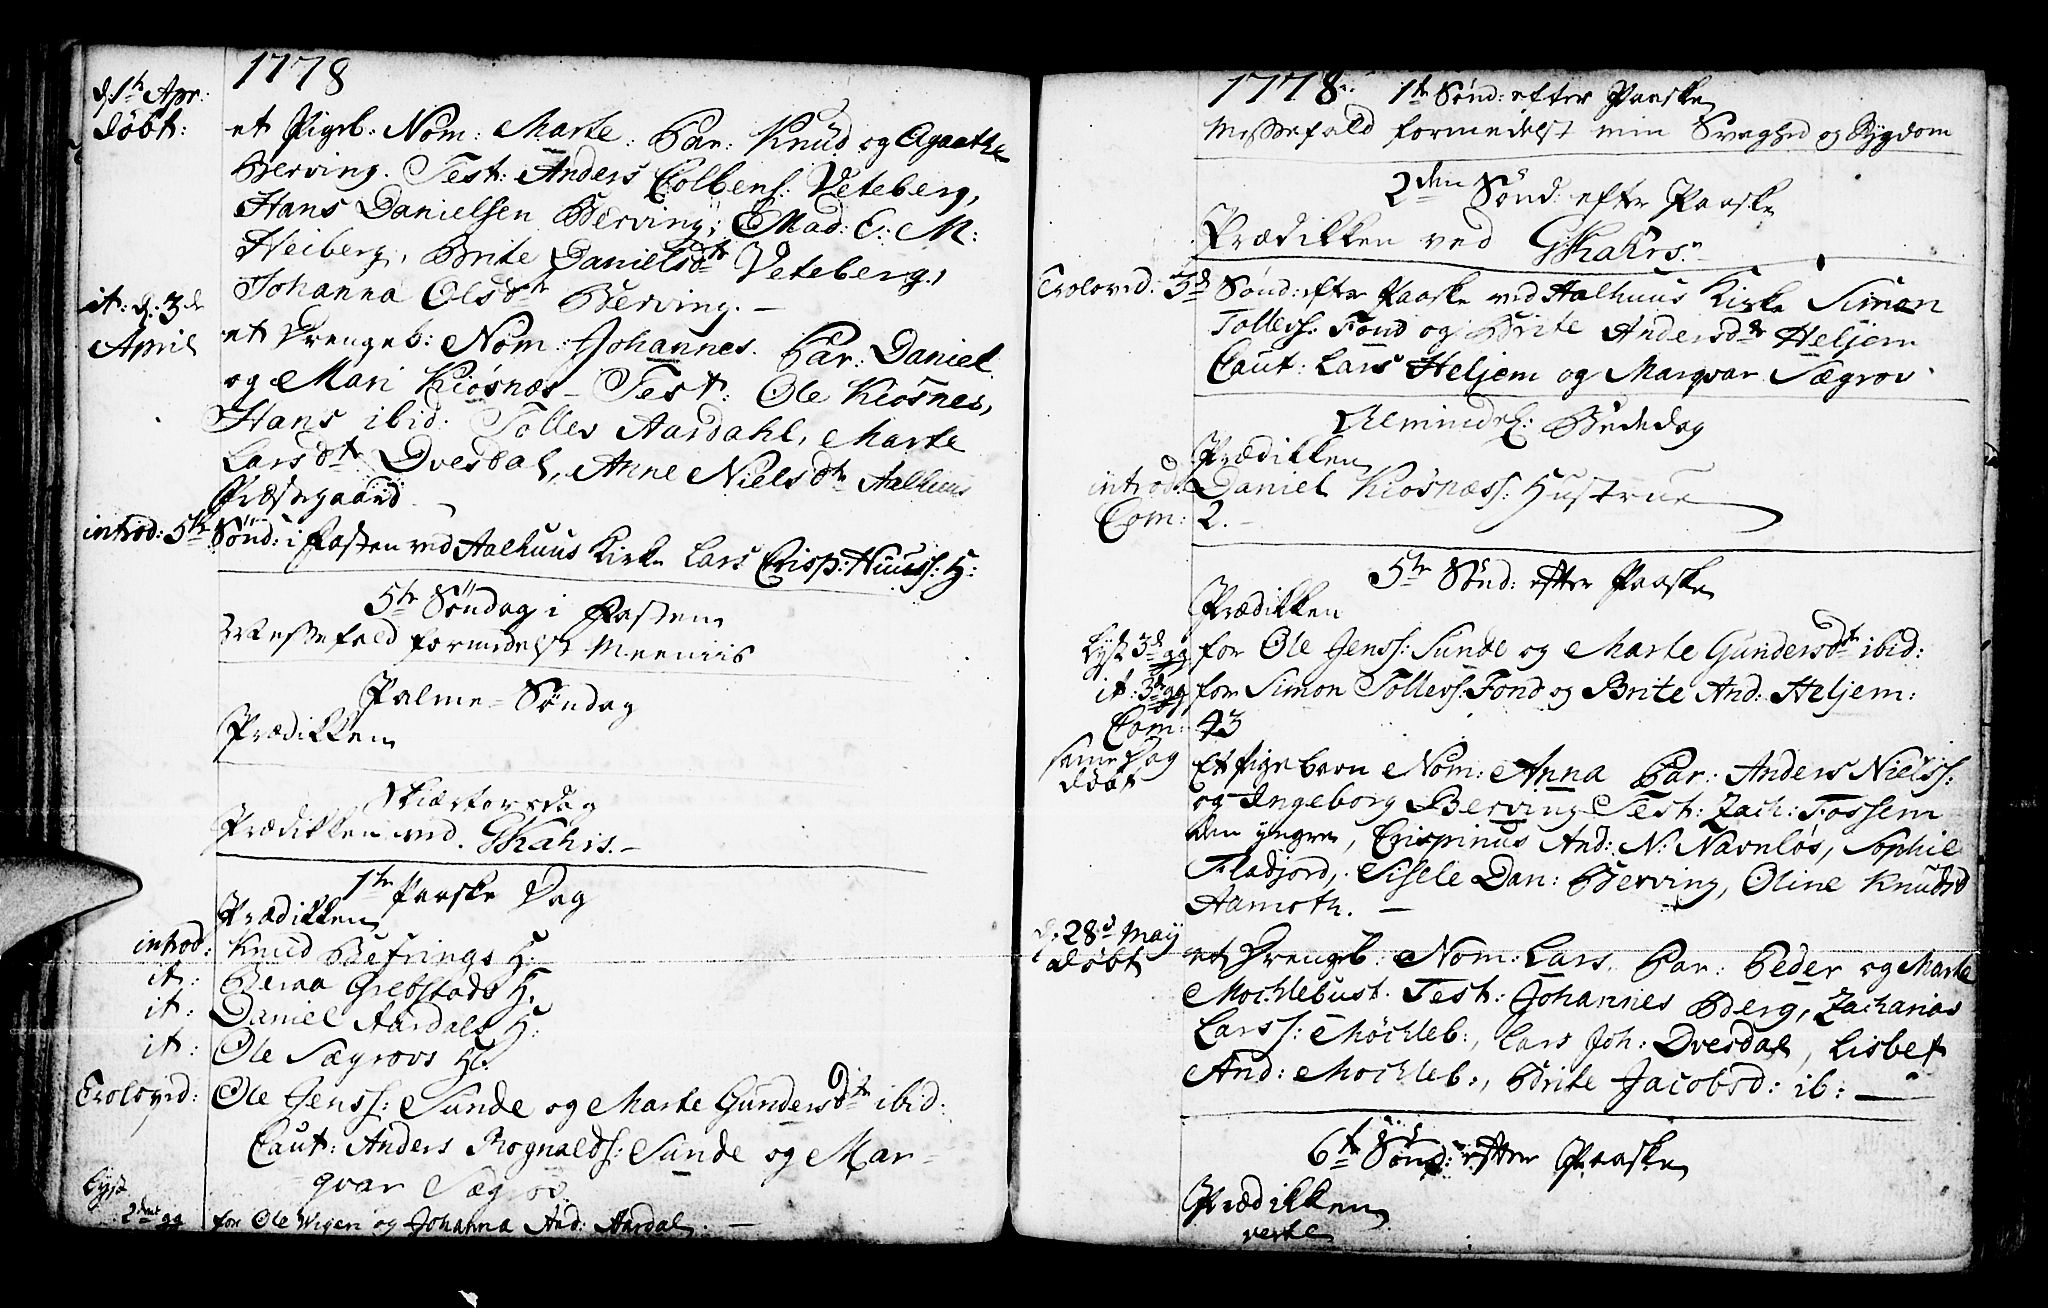 1778
d. 1te Apr:
döbt: et Pigeb: Nom: Marte. Par: Knud og Agaathe
Berving. Test: Anders Colbens: Veteberg,
Hans Danielsen Berving; Mad: C: M:
Heiberg, Brite Danielsdtr Veteberg,
Johanna Olsdtr Berving. —
it: d: 3de
April et Drengeb: Nom: Johannes. Par: Daniel
og Mari Kiösnæs — Test: Ole Kiösnes,
Hans ibid: Tollev Aardahl, Marte
Larsdtr Dvesdal, Anne Nielsdtr Aalhuus
Præstegaard
introd: 5te Sönd: i Fasten ved Aalhuus Kirke Lars Crisp: Huuss: H:
5te Söndag i Fasten
Messefald formedelst Meeniis
Palme-Söndag
Prædikken
Skiærtorsdag
Prædikken ved GKahrs. —
1te Paaske Dag
Prædikken
introd: Knud Befrings H:
it: Berna Grebstads H:
it: Daniel Aardals H:
it: Ole Sægrovs H:
Trolovid: Ole Jenss: Sunde og Marte Gundersdtr ibid:
Caut: Anders Rognalds: Sunde og Mar-
qvar Sægrov.
Lyst
2den gg for Ole Wigen og Johanna And: Aardal. —
1778. 1te Sönd: efter Paaske
Messefald formedelst min Svaghed og Sygdom
2den Sönd: efter Paaske
Prædikken ved GKahrs.
Trolovid: 3de Sönd: efter Paaske ved Aalhuus Kirke Simon
Tollevs: Fond og Brite Andersdr Heljem
Caut: Lars Heljem og Marqvar Sægrov.
Almindel: Bededag
Prædikken
introd: Daniel Kiösnæss: Hustrue
Com: 2. —
5te Sönd: efter Paaske
Prædikken
Lyst 3de gg for Ole Jenss: Sunde og Marte Gundersdtr ibid:
it: 3de gg for Simon Tollevs: Fond og Brite And: Heljem:
Com: 43
same Dag
döbt Et Pigebarn Nom: Anna Par: Anders Nielss:
og Ingeborg Berving Test: Zach: Fossem
den yngre, Crispinus And: N: Navnlös, Sophie
Fladjord, Sisele Dan: Berving, Oline Knudsd
Aamoth. —
d. 28d May
döbt et Drengeb: Nom: Lars. Par: Peder og Marte
Mochlebust. Test: Johannes Berg, Zacharias
Larss: Möchleb:, Lars Joh: Dvesdal, Lisbet
And: Mochleb:, Brite Jacobsd: ib: —
6te Sönd: efter Paaske
Prædikken
verte